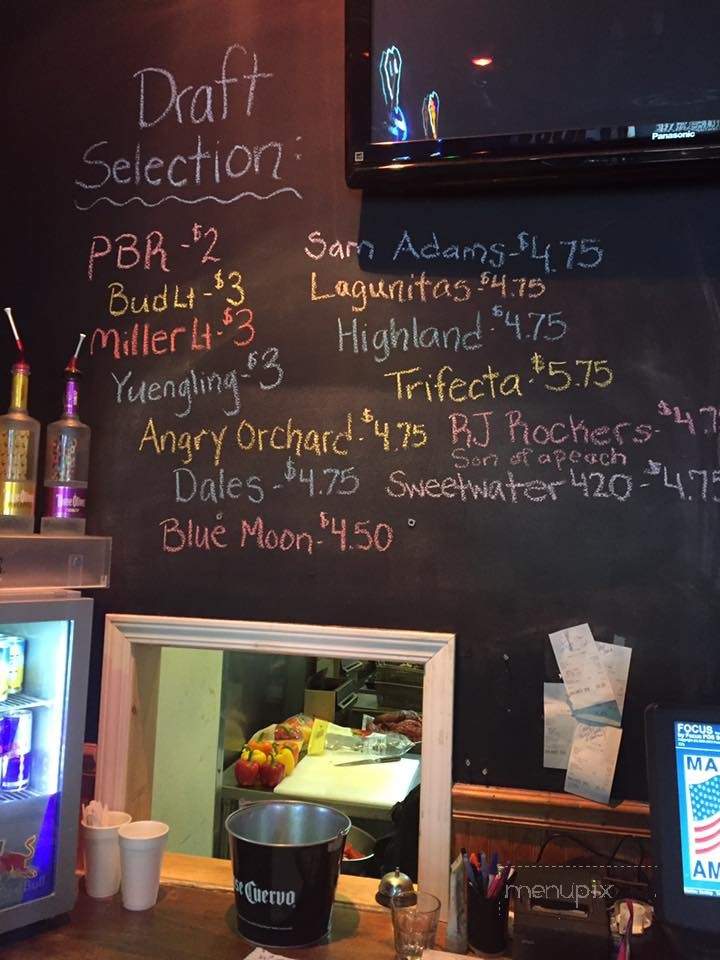 Draft
Selection:
PBR - $2
Bud Lt - $3
Miller Lt - $3
Yuengling - $3
Angry Orchard - $4.75
Dales - $4.75
Blue Moon - $4.50
Sam Adams - $4.75
Lagunitas - $4.75
Highland - $4.75
Trifecta - $5.75
RJ Rockers - $4.7
Son of a peach
Sweetwater 420 - $4.75
Panasonic
Cuervo
Red Bull
FOCUS
MA
AM
menupix